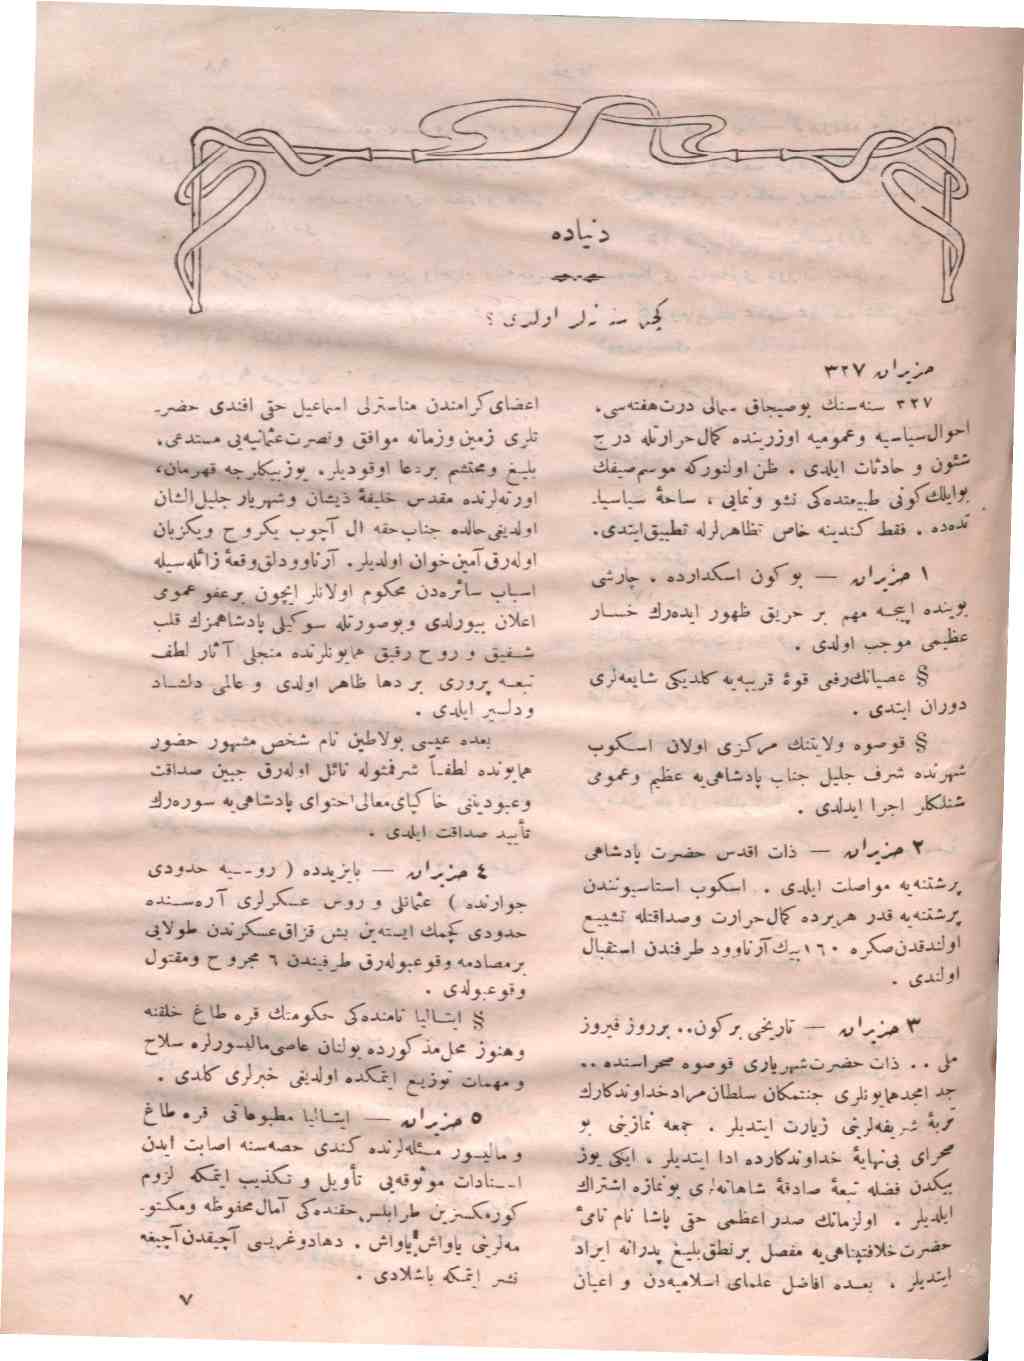 دنیاده
کچن سنه نلر اولدی ؟
حزیران ٣٢٧
٣٢٧ سنه‌سنك بوصیجاق سیالی درت‌هفته‌سی،
احوال‌سیاسیه وعمومیه اوزرینده کمال‌حرارتله درج
شئون و حادثات ایلدی . ظن اولنورکه موسم‌صیفك
بوایلك‌کونی طبیعتده‌کی نشو ونمایی ، ساحهٔ سیاسیا-
تده‌ده . فقط کندینه خاص تظاهرلرله تطبیق‌ایتدی.
١ حزیران — بوکون اسکدارده . چارشی
بوینده اپیجه مهم بر حریق ظهور ایده‌رك خسار
عظیمی موجب اولدی .
§ عصیانك‌رفعی قوهٔ قریبه‌یه کلدیکی شایعه‌لری
دوران ایتدی .
§ قوصوه ولایتنك مرکزی اولان اسکوب
شهرنده شرف جلیل جناب پادشاهی‌یه عظیم وعمومی
شنلکلر اجرا ایدلدی .
٢ حزیران — ذات اقدس حضرت پادشاهی
پرشتنه‌یه مواصلت ایلدی . اسکوب استاسیونندن
پرشتنه‌یه قدر هریرده کمال‌حرارت وصداقتله تشییع
اولندقدن‌صکره ١٦٠بیك‌آرناوود طرفندن استقبال
اولندی .
٣ حزیران — تاریخی برکون.. برروز فیروز
ملی .. ذات حضرت‌شهریاری قوصوه صحراسنده ..
جد امجدهمایونلری جنتمکان سلطان‌مرادخداوندکارك
تربهٔ شریفه‌لرینی زیارت ایتدیلر . جمعه نمازینی بو
صحرای بی‌نهایهٔ خداوندکارده ادا ایتدیلر ، ایکی یوز
بیکدن فضله تبعهٔ صادقهٔ شاهانه‌لری بونمازه اشتراك
ایلدیلر . اولزمانك صدر اعظمی حقی پاشا نام نامیٔ
حضرت خلافتپناهی‌یه مفصل برنطق‌بلیغ پدرانه ایراد
ایتدیلر . بعده افاضل علمای اسلامیه‌دن و اعیان
اعضای‌کرامندن مناسترلی اسماعیل حقی افندی حضر-
تلری زمین وزمانه موافق ونصرت‌عثمانیه‌یی مستدعی،
بلیغ ومحتشم بردعا اوقودیلر. یوزبیکلرجه قهرمان،
اورته‌لرنده مقدس خلیفهٔ ذیشان وشهریار جلیل‌الشان
اولدیغی‌حالده جناب‌حقه ال آچوب یکروح ویکزبان
اوله‌رق آمین‌خوان اولدیلر. آرناوودلق‌وقعهٔ زائله‌سیله
اسباب سائره‌دن محکوم اولانلر ایچون برعفو عمومی
اعلان بیورلدی وبوصورتله سوکیلی پادشاهمزك قلب
شفیق و روح رقیق همایونلرنده منجلی آثار لطف
تبعه پروری بردها ظاهر اولدی و عالمی دلشاد
ودلسیر ایلدی .
بعده عیسی بولاطین نام شخص مشهور حضور
همایونده لطفاً شرفمثوله نائل اوله‌رق جبین صداقت
وعبودیتنی خاکپای‌معالی‌احتوای پادشاهی‌یه سوره‌رك
تأیید صداقت ایلدی .
٤ حزیران — بایزیدده ( روسیه حدودی
جوارنده ) عثمانلی و روس عسکرلری آره‌سنده
حدودی کچمك ایسته‌ین بش قزاق‌عسکرندن طولایی
برمصادمه وقوعبوله‌رق طرفیندن ٦ مجروح ومقتول
وقوعبولدی .
§ ایتالیا نامنده‌کی حکومتك قره طاغ خلقنه
وهنوز محل‌مذکورده بولنان عاصی‌مالیسورلره سلاح
و مهمات توزیع ایتمکده اولدیغی خبرلری کلدی .
٥ حزیران — ایتالیا مطبوعاتی قره طاغ
و مالیسور مسئله‌لرنده کندی حصه‌سنه اصابت ایدن
اسنادات موثوقه‌یی تأویل و تکذیب ایتمکه لزوم
کورمکسزین طرابلس حقنده‌کی آمال‌محفوظه ومکتو-
مه‌لرینی یاواش یاواش . دهادوغریسی آچیقدن‌آچیغه
نشر ایتمکه باشلادی .
٧